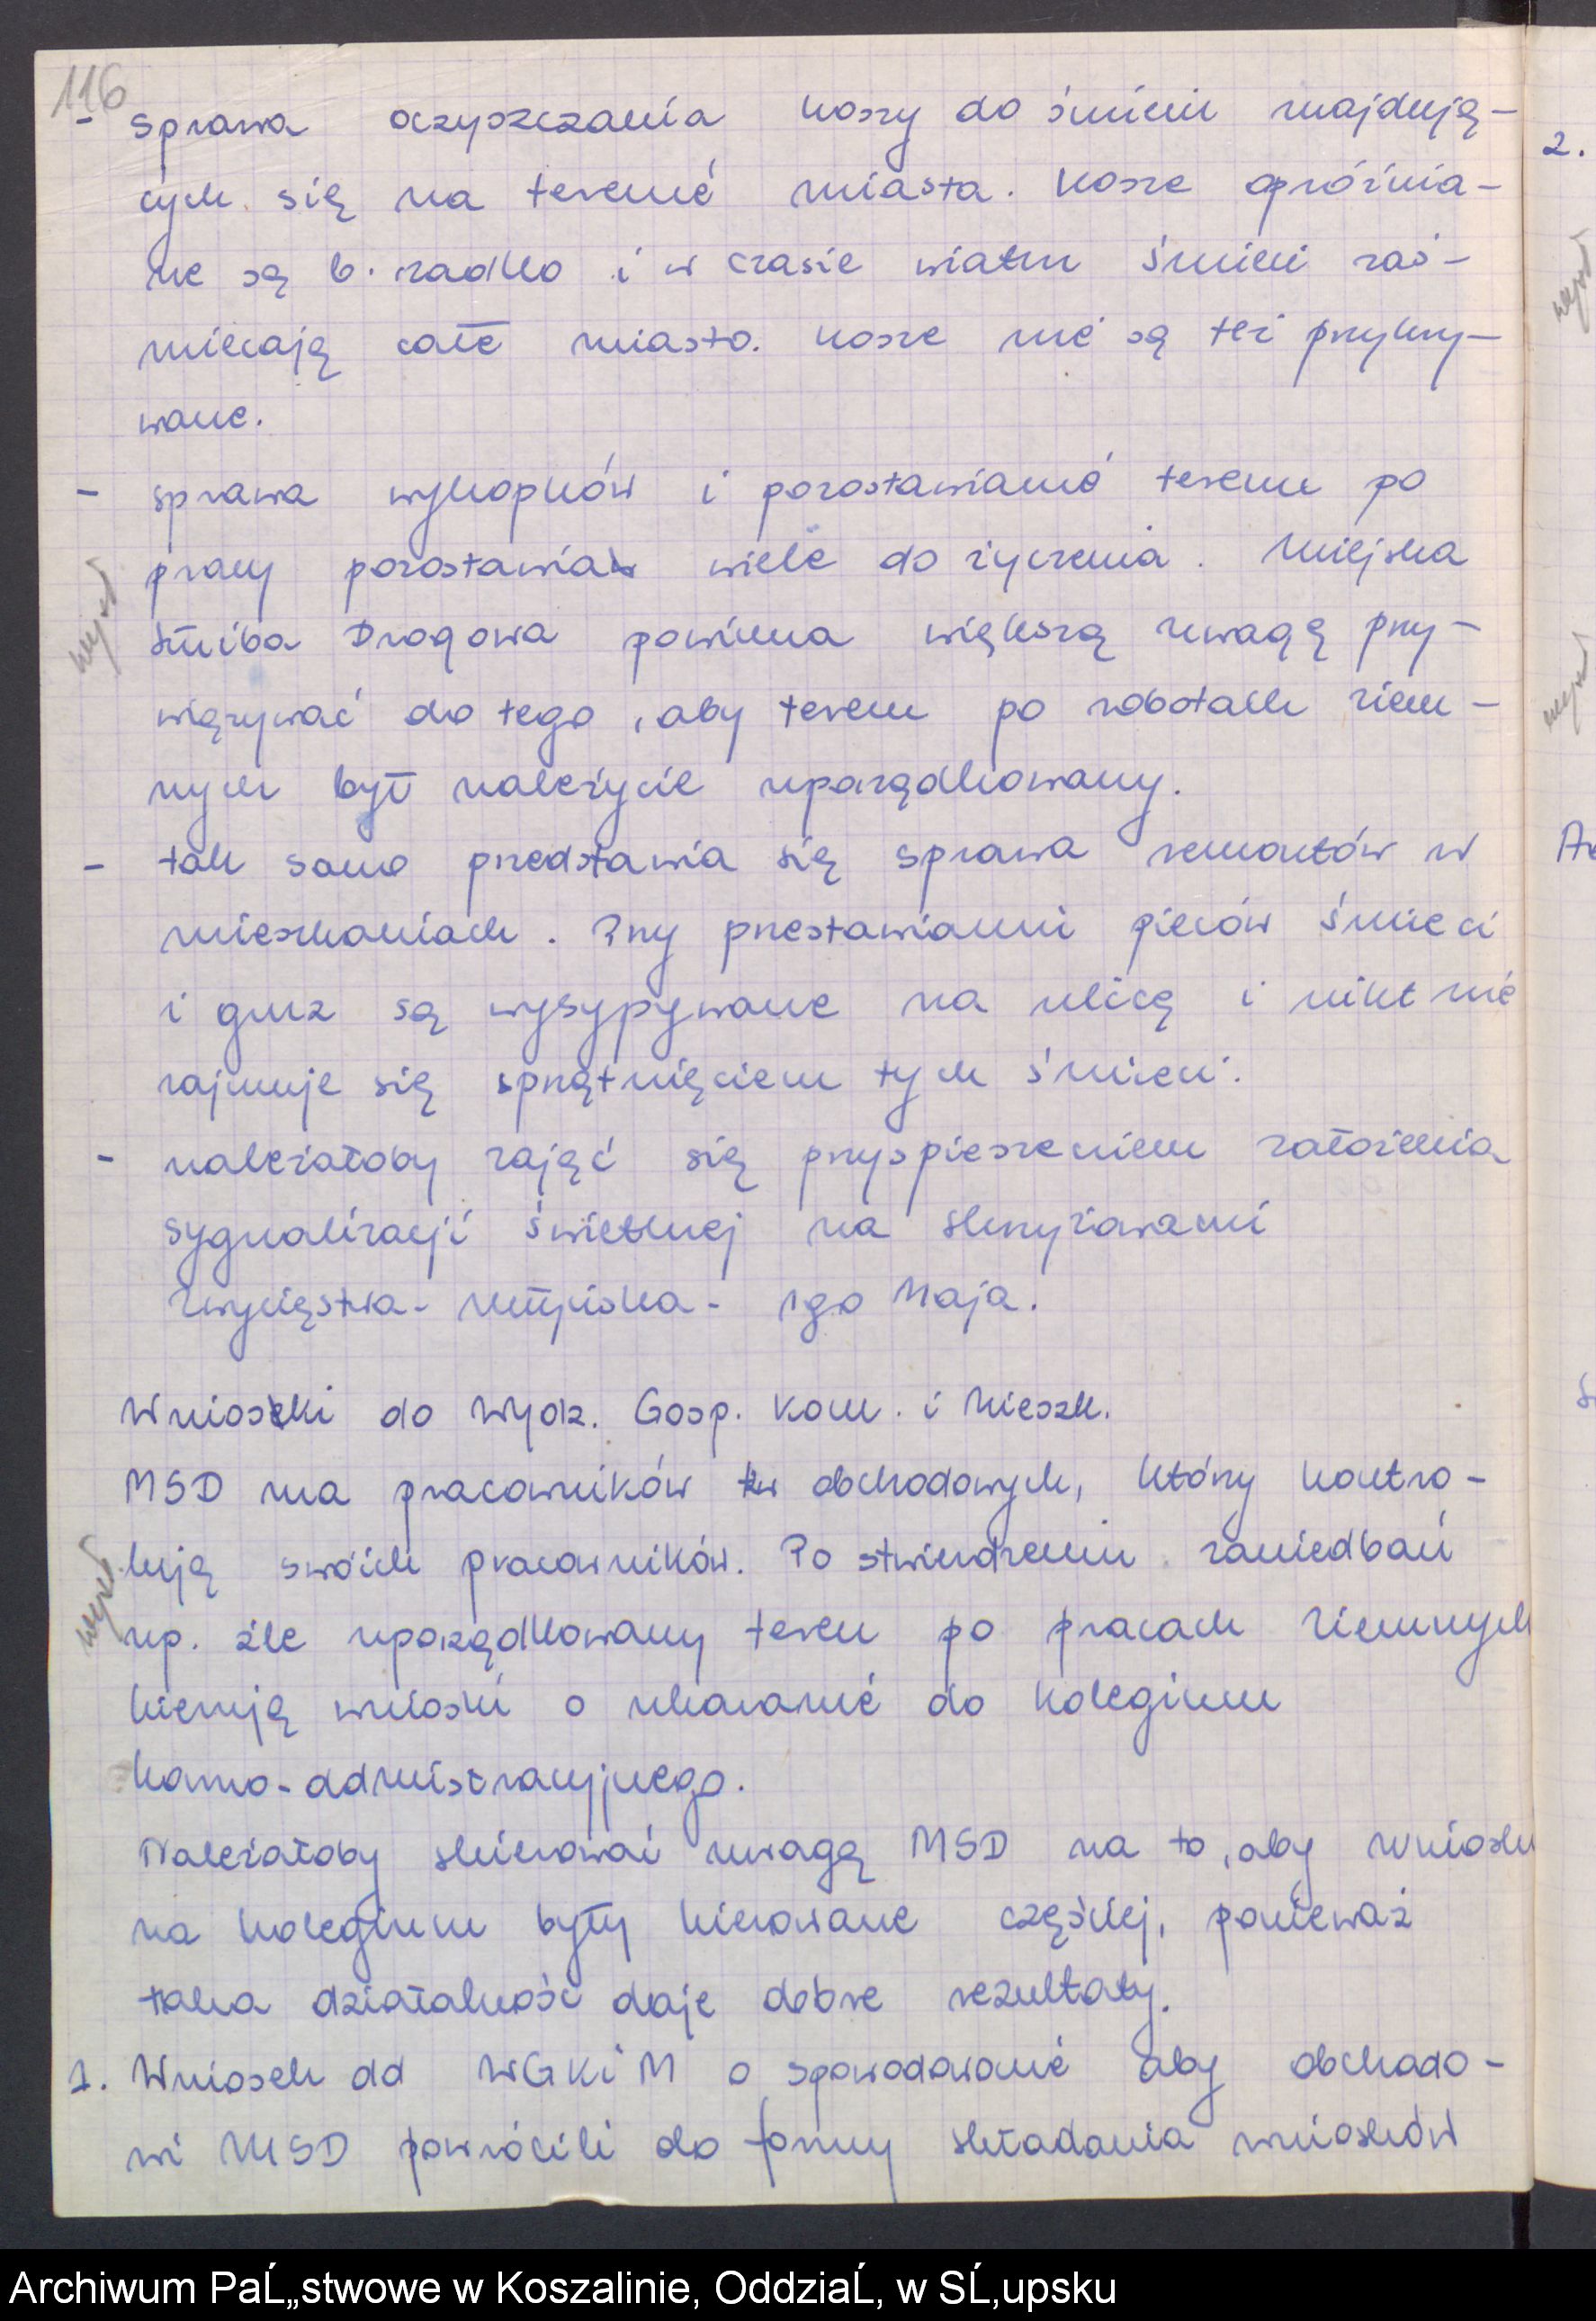 116
- sprawa oczyszczania koszy do śmieci znajdują-
cych się na terenie miasta. Kosze opróżnia-
ne są b. rzadko i w czasie wiatru śmieci zaś-
miecają całe miasto. Kosze nie są też przykry-
wane.
- sprawa wykopków i pozostawianie terenu po
pracy pozostawia wiele do życzenia. Miejska
Służba Drogowa powinna większą uwagę przy-
wiązywać do tego, aby teren po robotach ziem-
nych był należycie uporządkowany.
- tak samo przedstawia się sprawa remontów w
mieszkaniach. Przy przestawianiu pieców śmieci
i gruz są wysypywane na ulicę i nikt nie
zajmuje się sprzątnięciem tych śmieci.
- należałoby zająć się przyspieszeniem założenia
sygnalizacji świetlnej na skrzyżowaniu
Zwycięstwa - Młyńska - 1go Maja.
Wnioski do Wydz. Gosp. Kom. i Mieszk.
MSD ma pracowników obchodowych, którzy kontro-
lują swoich pracowników. Po stwierdzeniu zaniedbań
np. źle uporządkowany teren po pracach ziemnych
kierują wnioski o ukaranie do Kolegium
karno-admistracyjnego.
Należałoby skierować uwagę MSD na to, aby wnioski
na kolegium były kierowane częściej, ponieważ
taka działalność daje dobre rezultaty.
1. Wniosek do WGKiM o spowodowanie aby obchodo-
wi MSD powrócili do formy składania wniosków
2.
Archiwum PaĹ„stwowe w Koszalinie, OddziaĹ‚ w SĹ‚upsku